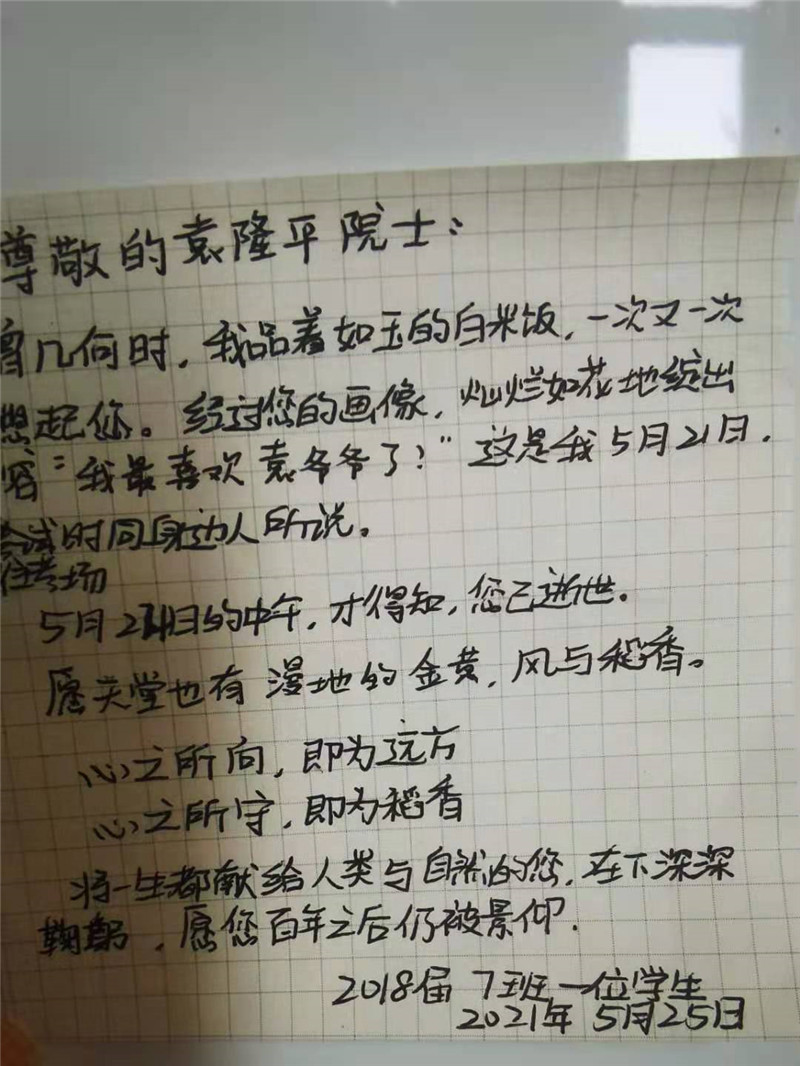 尊敬的袁隆平院士：
曾几何时，我品着如玉的白米饭，一次又一次
想起你。经过您的画像，灿烂如花地绽出
容“我最喜欢袁爷爷了！”这是我5月21日，
考试时同身边人所说。
在考场
5月24日的中午，才得知，您已逝世。
愿天堂也有漫地的金黄，风与稻香。
心之所向，即为远方
心之所守，即为稻香
将一生都献给人类与自然的您，在下深深
鞠躬，愿您百年之后仍被景仰．
2018届 7班一位学生
2021年 5月25日